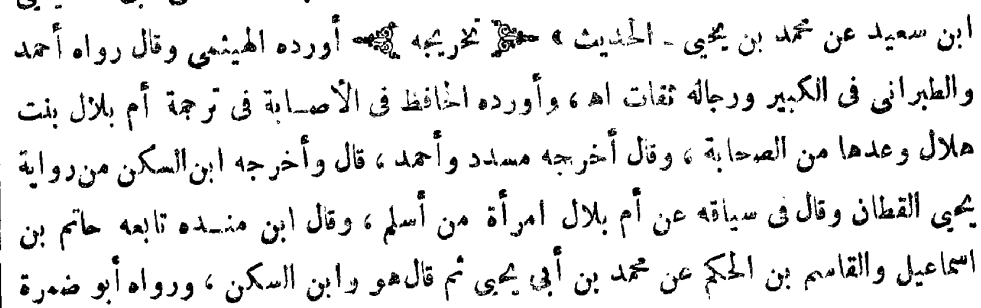 ابن سعيد عن محمد بن يحيى ـ الحديث » ﴿ تخريجه ﴾ أورده الهيثمى وقال رواه أحمد
والطبرانى فى الكبير ورجاله ثقات اهـ ، وأورده الحافظ فى الأصابة فى ترجمة أم بلال بنت
هلال وعدها من الصحابة ، وقال أخرجه مسدد وأحمد ، قال وأخرجه ابن السكن من رواية
يحيى القطان وقال فى سياقه عن أم بلال امرأة من أسلم ، وقال ابن منده تابعه حاتم بن
اسماعيل والقاسم بن الحكم عن محمد بن أبى يحيى ثم قال هو وابن السكن ، ورواه أبو ضمرة